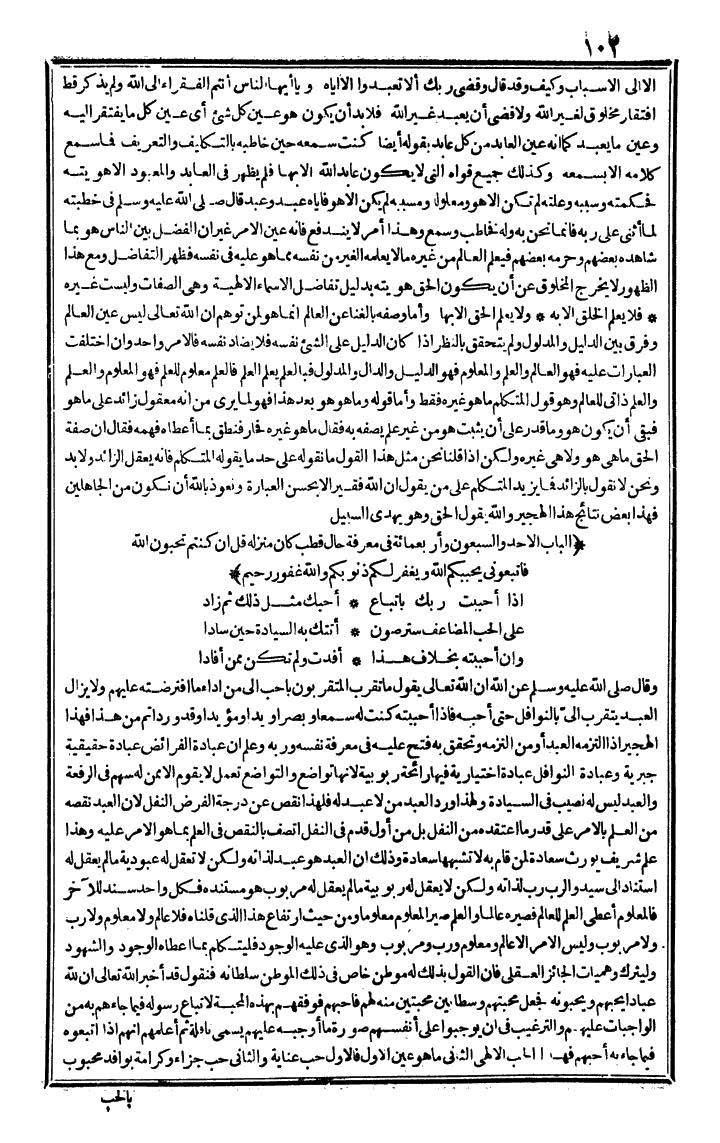 ١٠٢
الا الى الاسباب وكيف وقد قال وقضى ربك ألا تعبدوا الا اياه ويا أيها الناس أنتم الفقراء الى الله ولم يذكر قط
افتقار مخلوق لغير الله ولا قضى أن يعبد غير الله فلا بد أن يكون هو عين كل شئ أى عين كل ما يفتقر اليه
وعين ما يعبد كما انه عين العابد من كل عابد بقوله أيضا كنت سمعه حين خاطبه بالتكليف والتعريف فاسمع
كلامه الا بسمعه وكذلك جميع قواه التى لا يكون عابد الله الا بها فلم يظهر فى العابد والمعبود الا هويته
فحكمته وسببه وعلته لم تكن الا هو ومعلوله ومسببه لم يكن الا هو فاياه عبد وعبد قال صلى الله عليه وسلم فى خطبته
لما أثنى على ربه فانما نحن به وله فخاطب وسمع وهذا أمر لا يندفع فانه عين الامر غير ان الفضل بين الناس هو بما
شاهده بعضهم وحرمه بعضهم فيعلم العالم من غيره ما لا يعلمه الغير من نفسه مما هو عليه فى نفسه فظهر التفاضل ومع هذا
الظهور لا يخرج المخلوق عن أن يكون الحق هويته بدليل تفاضل الاسماء الالهية وهى الصفات وليست غيره
* فلا يعلم الخلق الا به * ولا يعلم الحق الا بها وأما وصفه بالغنا عن العالم انما هو لمن توهم ان الله تعالى ليس عين العالم
وفرق بين الدليل والمدلول ولم يتحقق بالنظر اذا كان الدليل على الشئ نفسه فلا يضاد نفسه فالامر واحد وان اختلفت
العبارات عليه فهو العالم والعلم والمعلوم فهو الدليل والدال والمدلول فبالعلم يعلم العلم فالعلم معلوم للعلم فهو المعلوم والعلم
والعلم ذاتى للعالم وهو قول المتكلم ما هو غيره فقط وأما قوله وما هو هو بعد هذا فهو لما يرى من انه معقول زائد على ما هو
فبقى أن يكون هو وما قدر على أن يثبت هو من غير علم يصفه به فقال ما هو غيره فحار فنطق بما أعطاه فهمه فقال ان صفة
الحق ما هى هو ولا هى غيره ولكن اذا قلنا نحن مثل هذا القول ما نقوله على حد ما يقوله المتكلم فانه يعقل الزائد ولا بد
ونحن لا نقول بالزائد فما يزيد المتكلم على من يقول ان الله فقير الا بحسن العبارة ونعوذ بالله أن نكون من الجاهلين
فهذا بعض نتائج هذا الهجير والله يقول الحق وهو يهدى السبيل
﴿الباب الاحد والسبعون وأربعمائة فى معرفة حال قطب كان منزله قل ان كنتم تحبون الله
فاتبعونى يحببكم الله ويغفر لكم ذنوبكم والله غفور رحيم﴾
اذا أحببت ربك باتباع * أحبك مثل ذلك ثم زاد
على الحب المضاعف ستر صون * أتتك به السيادة حين سادا
وان أحببته بخلاف هذا * أفدت ولم تكن ممن أفادا
وقال صلى الله عليه وسلم عن الله ان الله تعالى يقول ما تقرب المتقربون باحب الى من اداء ما افترضته عليهم ولا يزال
العبد يتقرب الىّ بالنوافل حتى أحبه فاذا أحببته كنت له سمعا وبصرا ويدا ومؤيدا وقد وردأتم من هذا فهذا
الهجير اذا التزمه العبد أو من التزمه وتحقق به فتح عليه فى معرفة نفسه وربه وعلم ان عبادة الفرائض عبادة حقيقية
جبرية وعبادة النوافل عبادة اختيارية فيها رائحة ربوبية لانها تواضع والتواضع تعمل لا يقوم الا ممن له سهم فى الرفعة
والعبد ليس له نصيب فى السيادة ولهذا ورد العبد من لا عبد له فلهذا نقص عن درجة الفرض النفل لان العبد نقصه
من العلم بالامر على قدر ما اعتقده من النفل بل من أول قدم فى النفل اتصف بالنقص فى العلم بما هو الامر عليه وهذا
علم شريف يورث سعادة لمن قام به لا تشبهها سعادة وذلك ان العبد هو عبد لذاته ولكن لا تعقل له عبودية ما لم يعقل له
استناد الى سيد والرب رب لذاته ولكن لا يعقل له ربوبية ما لم يعقل له مربوب هو مستنده فكل واحد سند للآخر
فالمعلوم أعطى العلم للعالم فصيره عالما والعلم صير المعلوم معلوما ومن حيث ارتفاع هذا الذى قلناه فلا عالم ولا معلوم ولا رب
ولا مربوب وليس الامر الا عالم ومعلوم ورب ومربوب وهو الذى عليه الوجود فليتكلم بما اعطاه الوجود والشهود
وليترك وهميات الجائز العقلى فان القول بذلك له موطن خاص فى ذلك الموطن سلطانه فنقول قد أخبر الله تعالى ان لله
عبادا يحبهم ويحبونه فجعل محبتهم وسطا بين محبتين منه لهم فاحبهم فوفقهم بهذه المحبة لاتباع رسوله فيما جاءهم به من
الواجبات عليهم والترغيب فى ان يوجبوا على أنفسهم صورة ما أوجبه عليهم يسمى نافلة ثم أعلمهم انهم اذا اتبعوه
فيما جاء به أحبهم فهذا الحب الالهى الثانى ما هو عين الاول فالاول حب عناية والثانى حب جزاء وكرامة بوافد محبوب
بالحب